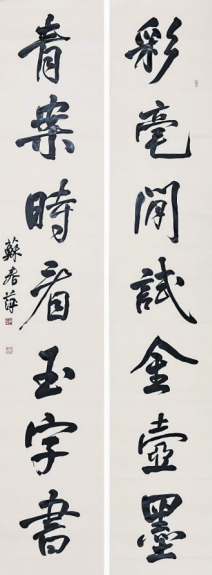 彩毫閒試金壺墨
青案時看玉字書
蘇春海